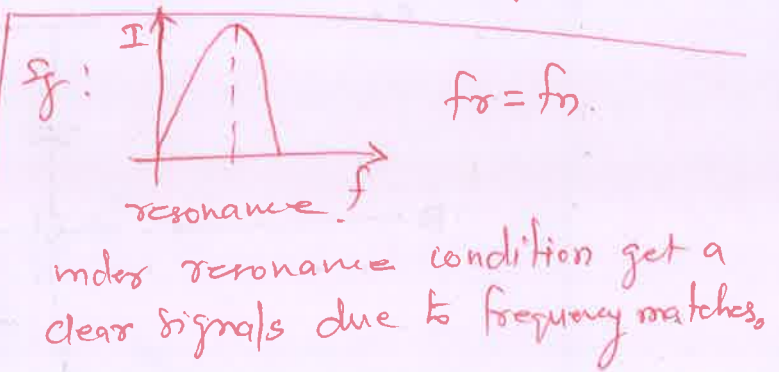 Eg:
I
fr = fn.
f
resonance.
under resonance condition get a
clear signals due to frequency matches.